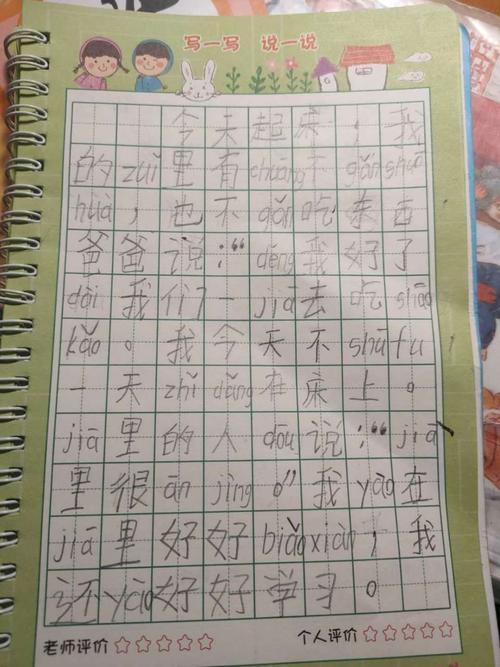 写一写 说一说
今天起床，我
的zuǐ里有chuāng不gǎnshuō
huà，也不gǎn吃东西
爸爸说：“děng我好了
dài我们一jiā去吃shāo
kǎo。我今天不shūfu
一天zhǐdǎng在床上。
jiā里的人dōu说：“jiā
里很ānjìng。”我yào在
jiā里好好biǎoxiàn，我
还yào好好学习。
老师评价☆☆☆☆☆ 个人评价☆☆☆☆☆